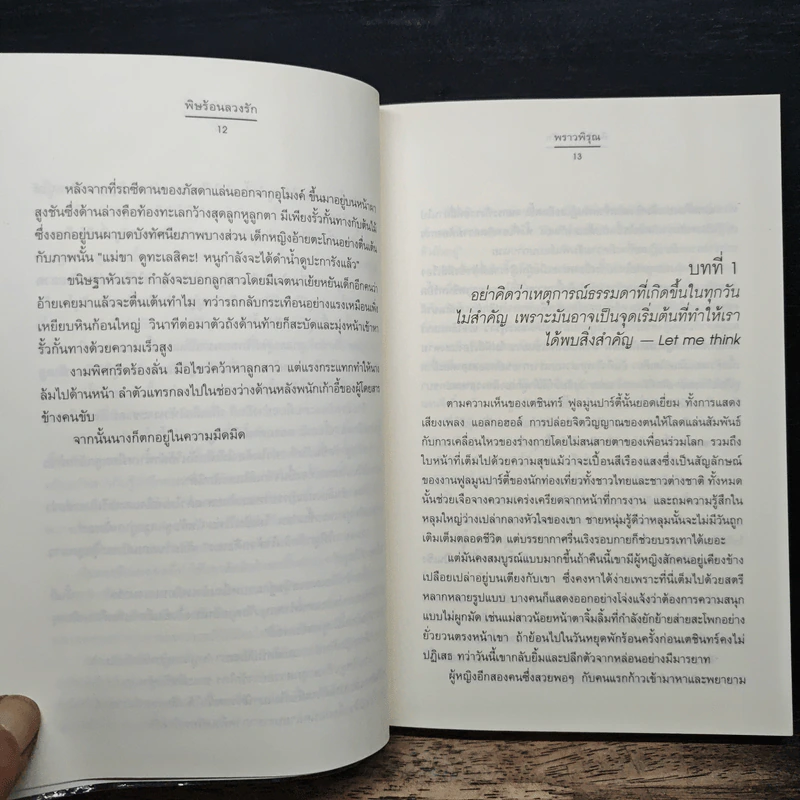 พิษร้อนลวงรัก
12
หลังจากที่รถซีดานของภัสดาแล่นออกจากอุโมงค์ ขึ้นมาอยู่บนหน้าผา
สูงชันซึ่งด้านล่างคือท้องทะเลกว้างสุดลูกหูลูกตา มีเพียงรั้วกั้นทางกับต้นไม้
ซึ่งงอกอยู่บนผาบดบังทัศนียภาพบางส่วน เด็กหญิงอ้ายตะโกนอย่างตื่นเต้น
กับภาพนั้น "แม่ขา ดูทะเลสิคะ! หนูกำลังจะได้ดำน้ำดูปะการังแล้ว"
ขนิษฐาหัวเราะ กำลังจะบอกลูกสาวโดยมีเจตนาเย้ยหยันเด็กอีกคนว่า
อ้ายเคยมาแล้วจะตื่นเต้นทำไม ทว่ารถกลับกระเทือนอย่างแรงเหมือนเพิ่ง
เหยียบหินก้อนใหญ่ วินาทีต่อมาตัวถังด้านท้ายก็สะบัดและมุ่งหน้าเข้าหา
รั้วกั้นทางด้วยความเร็วสูง
งามพิศกรีดร้องลั่น มือไขว่คว้าหาลูกสาว แต่แรงกระแทกทำให้นาง
ล้มไปด้านหน้า ลำตัวแทรกลงไปในช่องว่างด้านหลังพนักเก้าอี้ของผู้โดยสาร
ข้างคนขับ
จากนั้นนางก็ตกอยู่ในความมืดมิด
พราวพิรุณ
13
บทที่ 1
อย่าคิดว่าเหตุการณ์ธรรมดาที่เกิดขึ้นในทุกวัน
ไม่สำคัญ เพราะมันอาจเป็นจุดเริ่มต้นที่ทำให้เรา
ได้พบสิ่งสำคัญ — Let me think
ตามความเห็นของเตชินทร์ ฟูลมูนปาร์ตี้นั้นยอดเยี่ยม ทั้งการแสดง
เสียงเพลง แอลกอฮอล์ การปล่อยจิตวิญญาณของตนให้โลดแล่นสัมพันธ์
กับการเคลื่อนไหวของร่างกายโดยไม่สนสายตาของเพื่อนร่วมโลก รวมถึง
ใบหน้าที่เต็มไปด้วยความสุขแม้ว่าจะเปื้อนสีเรืองแสงซึ่งเป็นสัญลักษณ์
ของงานฟูลมูนปาร์ตี้ของนักท่องเที่ยวทั้งชาวไทยและชาวต่างชาติ ทั้งหมด
นั้นช่วยเจือจางความเคร่งเครียดจากหน้าที่การงาน และถมความรู้สึกใน
หลุมใหญ่ว่างเปล่ากลางหัวใจของเขา ชายหนุ่มรู้ดีว่าหลุมนั้นจะไม่มีวันถูก
เติมเต็มตลอดชีวิต แต่บรรยากาศรื่นเริงรอบกายก็ช่วยบรรเทาได้เยอะ
แต่มันคงสมบูรณ์แบบมากขึ้นถ้าคืนนี้เขามีผู้หญิงสักคนอยู่เคียงข้าง
เปลือยเปล่าอยู่บนเตียงกับเขา ซึ่งคงหาได้ง่ายเพราะที่นี่เต็มไปด้วยสตรี
หลากหลายรูปแบบ บางคนก็แสดงออกอย่างโจ่งแจ้งว่าต้องการความสนุก
แบบไม่ผูกมัด เช่นแม่สาวน้อยหน้าตาจิ้มลิ้มที่กำลังยักย้ายส่ายสะโพกอย่าง
ยั่วยวนตรงหน้าเขา ถ้าย้อนไปในวันหยุดพักร้อนครั้งก่อนเตชินทร์คงไม่
ปฏิเสธ ทว่าวันนี้เขากลับยิ้มและปลีกตัวจากหล่อนอย่างมีมารยาท
ผู้หญิงอีกสองคนซึ่งสวยพอๆ กับคนแรกก้าวเข้ามาหาและพยายาม